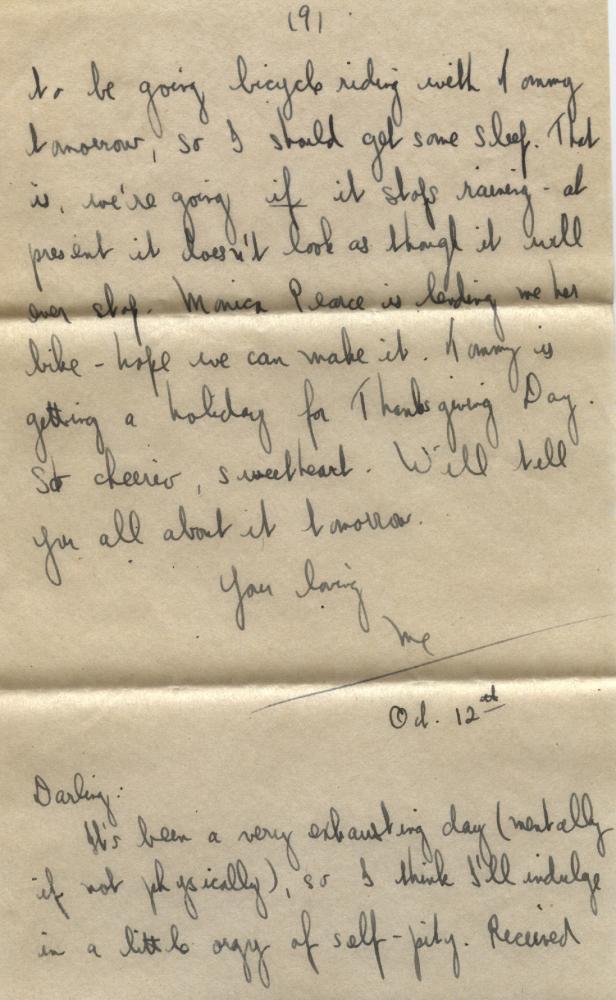 (9)
to be going bicycle riding with Tommy
tomorrow, so I should get some sleep. That
is, we're going if it stops raining - at
present it doesn't look as though it will
ever stop. Monica Pearce is lending me her
bike - hope we can make it. Tommy is
getting a holiday for Thanksgiving Day.
So cheerio, sweetheart. We'll tell
you all about it tomorrow.
Your loving
Me
Oct. 12th
Darling:
It's been a very exhausting day (mentally
if not physically), so I think I'll indulge
in a little orgy of self-pity. Received